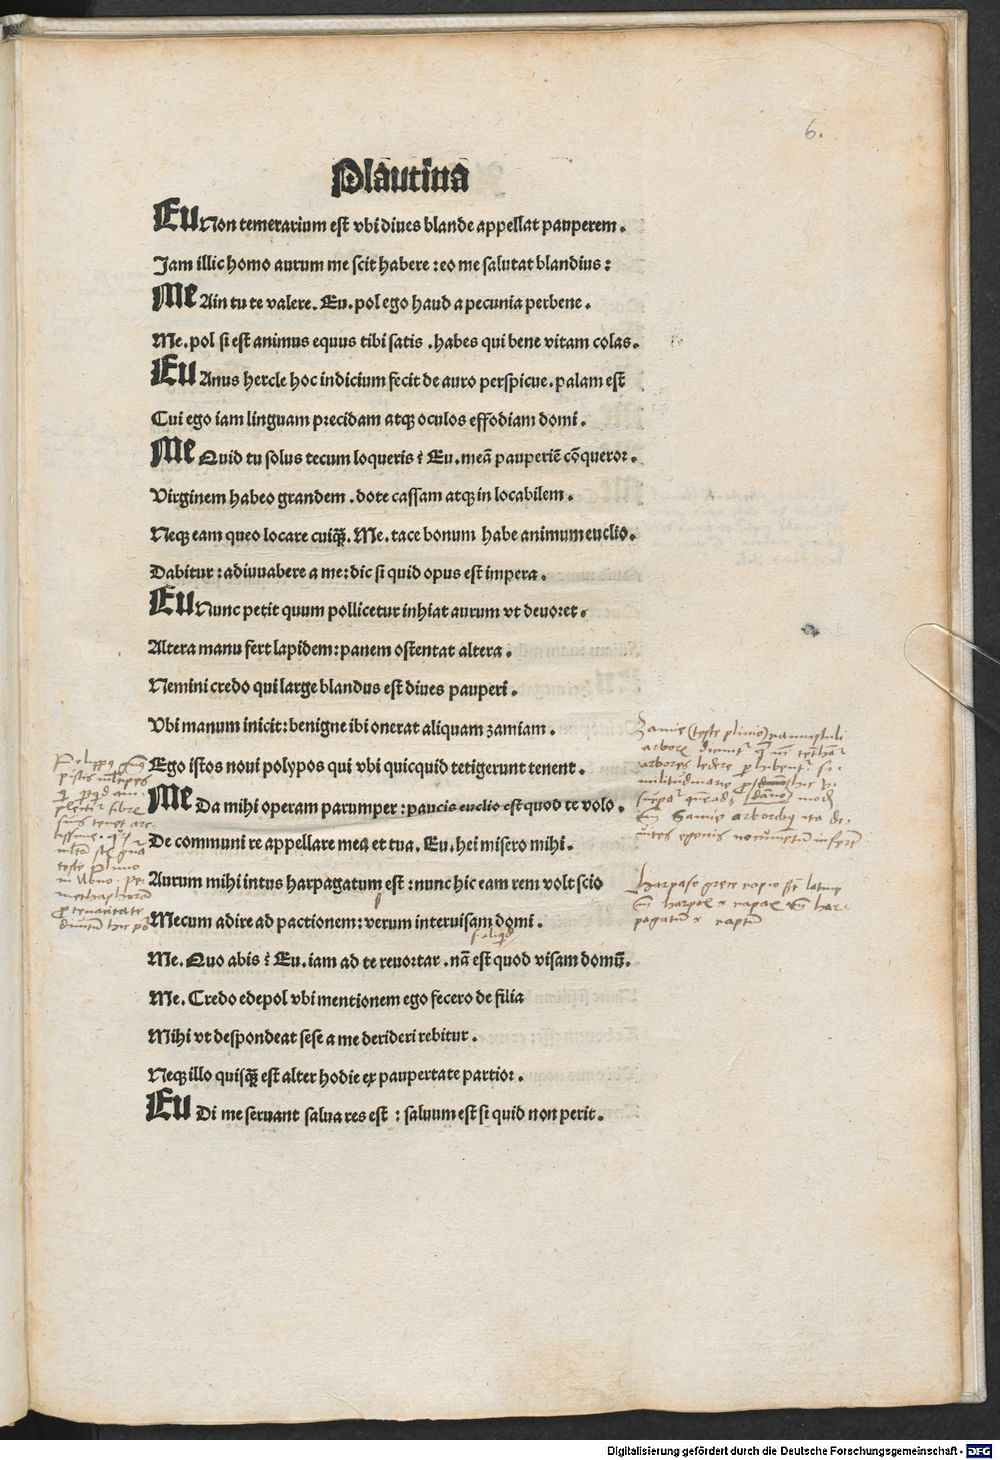 6.
Plautina
EU Non temerarium est vbi diues blande appellat pauperem.
Jam illic homo aurum me scit habere : eo me salutat blandius :
ME Ain tu te valere. Eu. pol ego haud a pecunia perbene.
Me. pol si est animus equus tibi satis .habes qui bene vitam colas.
EU Anus hercle hoc indicium fecit de auro perspicue. palam est
Cui ego iam linguam precidam atqȝ oculos effodiam domi.
ME Quid tu solus tecum loqueris ? Eu. meā pauperiē cōqueror.
Virginem habeo grandem .dote cassam atqȝ in locabilem.
Neqȝ eam queo locare cuiqȝ̄. Me. tace bonum habe animum euclio.
Dabitur : adiuuabere a me : dic si quid opus est impera.
EU Nunc petit quum pollicetur inhiat aurum vt deuoret.
Altera manu fert lapidem : panem ostentat altera.
Nemini credo qui large blandus est diues pauperi.
Vbi manum inicit : benigne ibi onerat aliquam zamiam.
Ego istos noui polypos qui vbi quicquid tetigerunt tenent.
ME Da mihi operam parumper : paucis euclio est quod te volo.
De communi re appellare mea et tua. Eu. hei misero mihi.
Aurum mihi intus harpagatum est : nunc hic eam rem volt scio
Mecum adire ad pactionem : verum interuisam domi.
Me. Quo abis ? Eu. iam ad te reuortar .nā est quod visam domū.
Me. Credo edepol vbi mentionem ego fecero de filia
Mihi vt despondeat sese a me derideri rebitur.
Neqȝ illo quisqȝ̄ est alter hodie ex paupertate partior.
EU Di me seruant salua res est : saluum est si quid non perit.
teste
tenacitate
Zamie (teste plinio)
arbores ledere
Zamie arboribus ita di-
uites egenis
harpaso grece rapio
harpax rapax har-
pagatum raptum
Digitalisierung gefördert durch die Deutsche Forschungsgemeinschaft - DFG